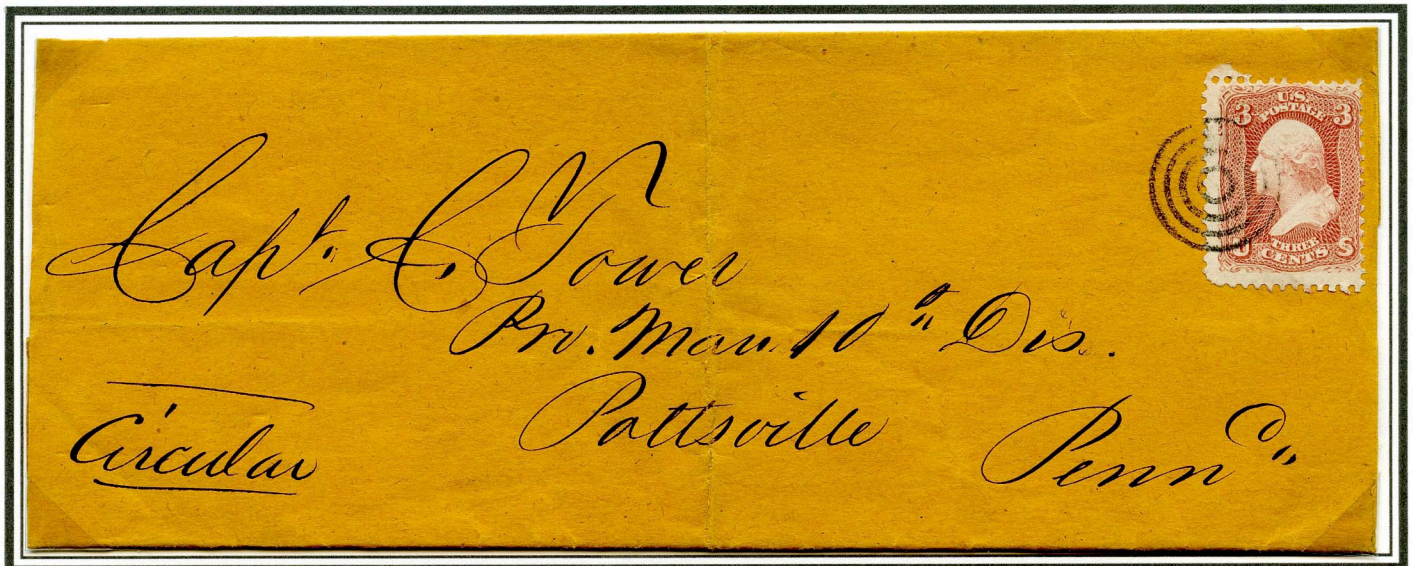 U.S.
POSTAGE
3 3
THREE
CENTS
U S
Capt. C. Tower
Pro. Mar. 10" Dis.
Pottsville Penna"
Circular